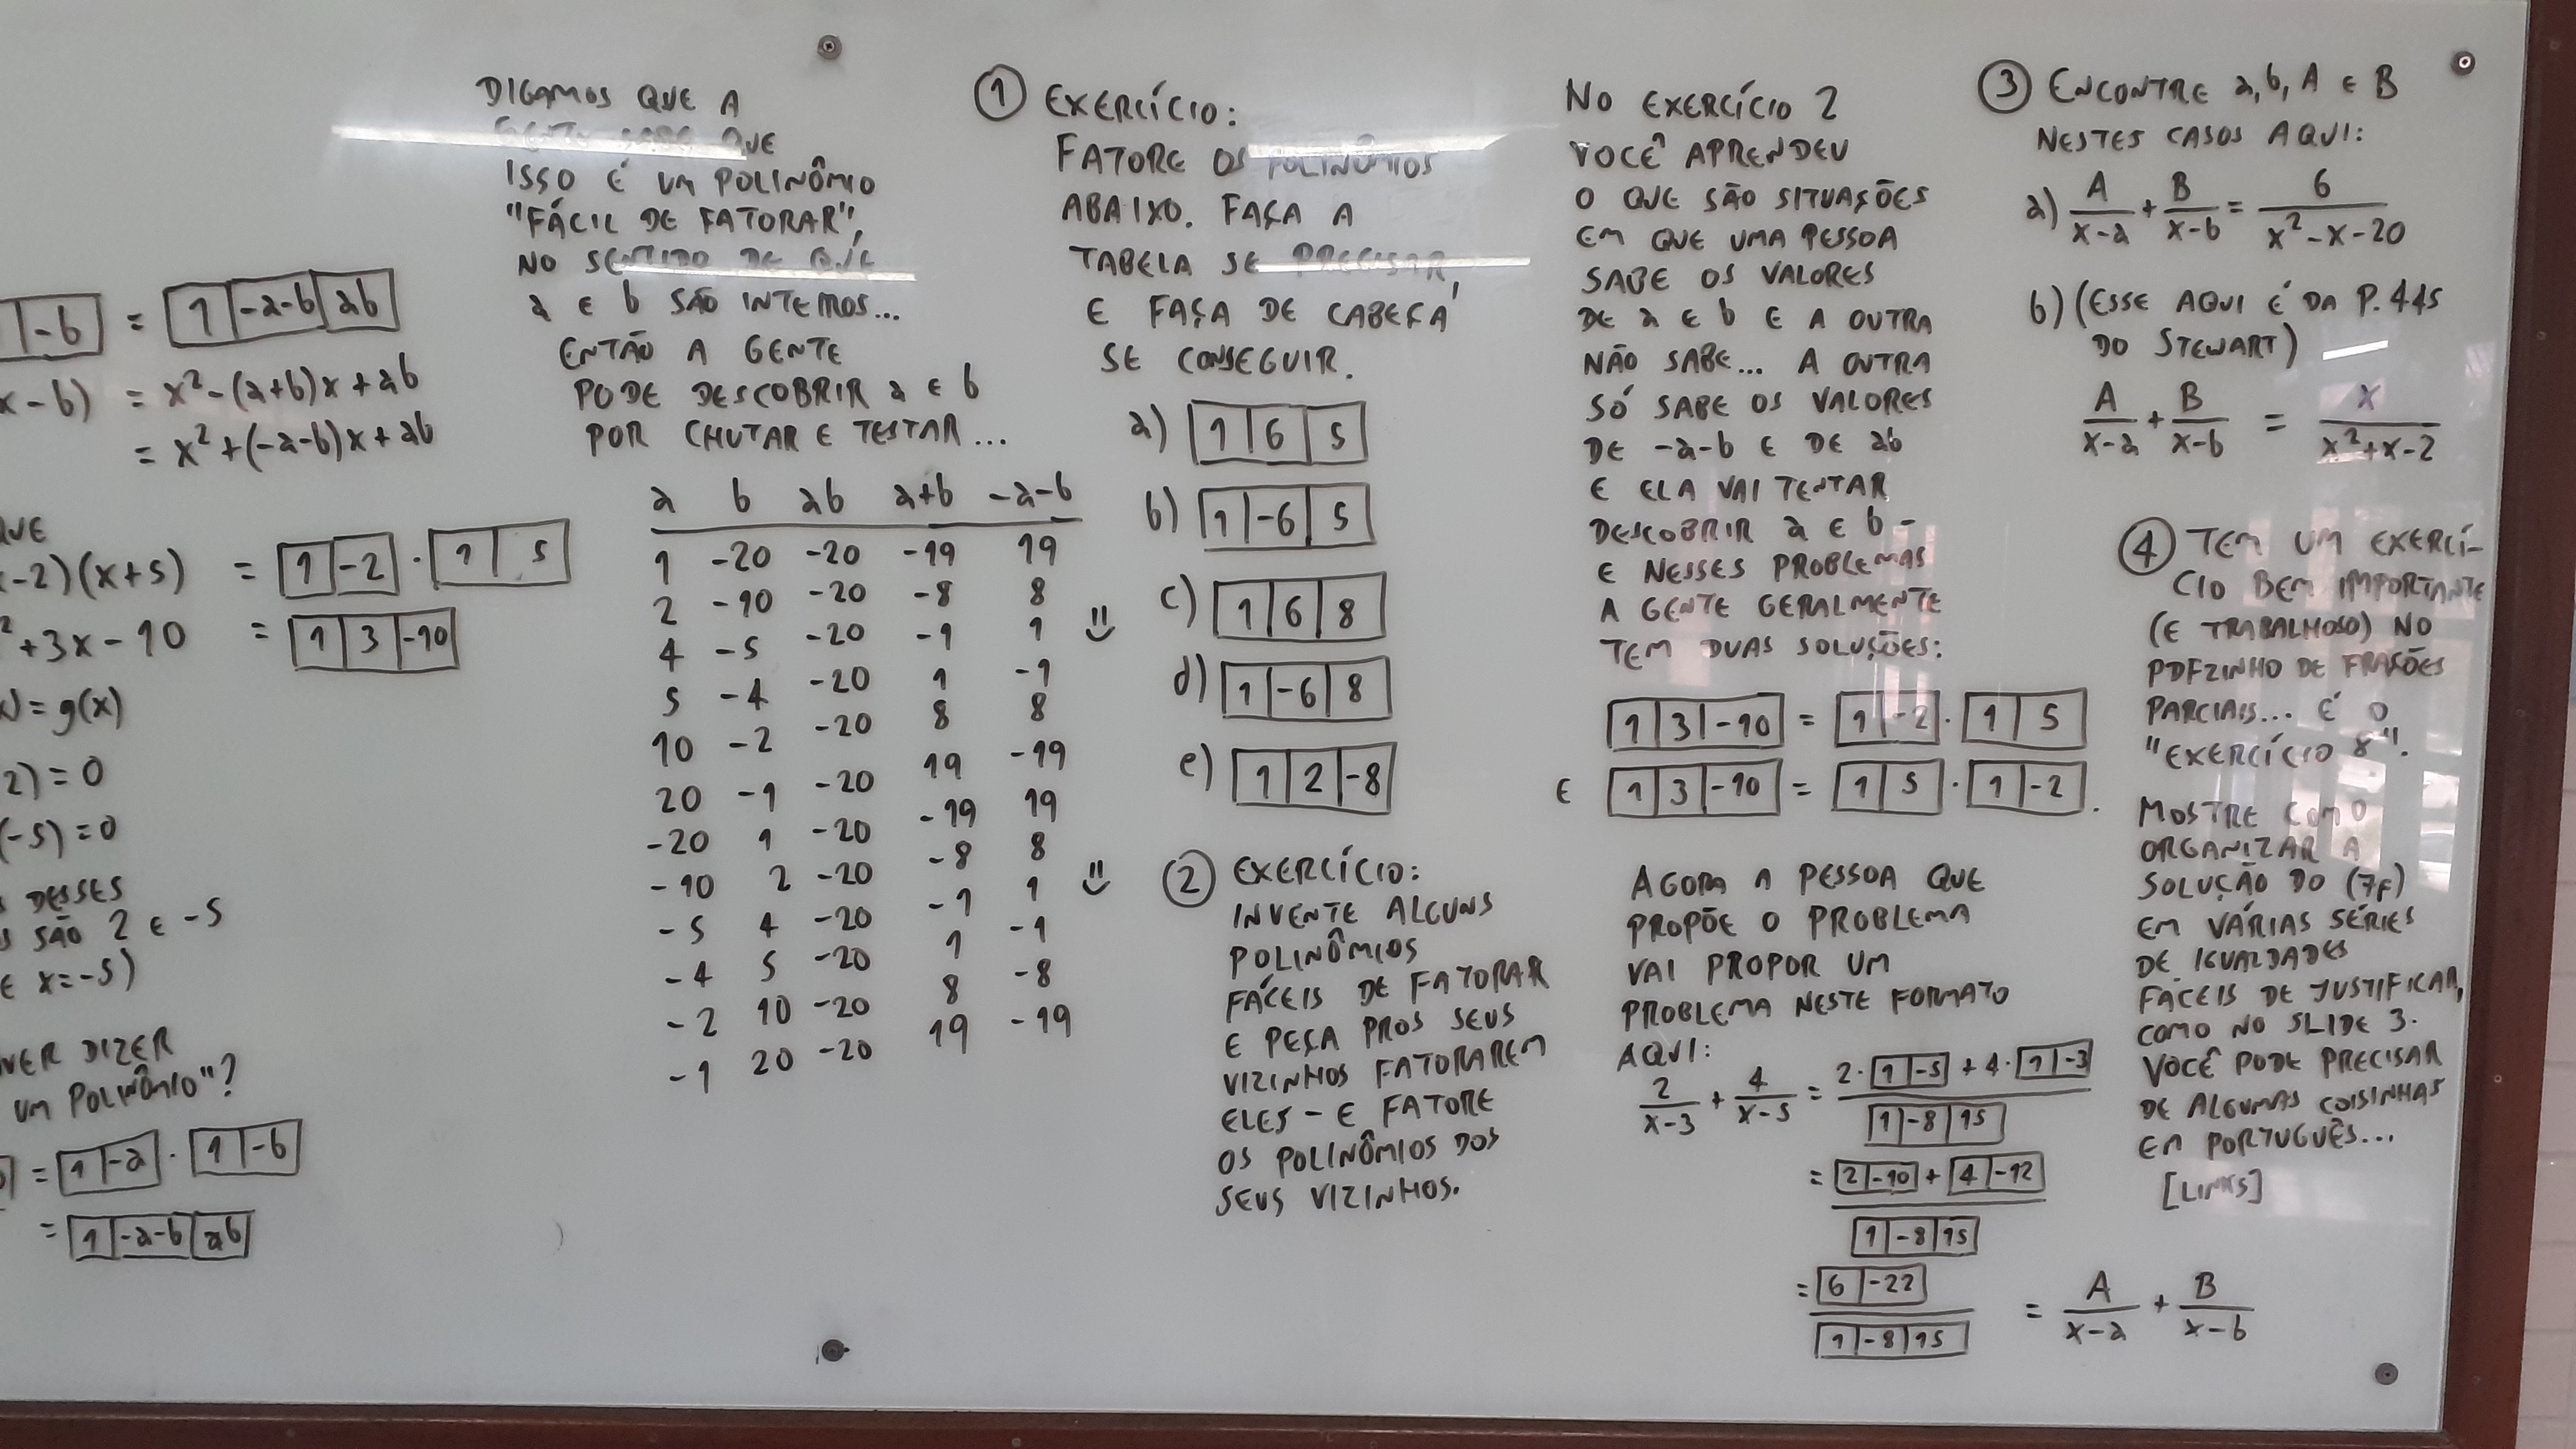 |-b] = [1|-a-b|ab]
x-b) = x²-(a+b)x+ab
= x²+(-a-b)x+ab
QUE
-2)(x+5) = [1|-2]·[1|5]
²+3x-10 = [1|3|-10]
x)=g(x)
2)=0
(-5)=0
DESSES
SÃO 2 E -5
E x=-5)
UER DIZER
UM POLINÔMIO"?
= [1|-a]·[1|-b]
= [1|-a-b|ab]
DIGAMOS QUE A
GENTE SABE QUE
ISSO É UM POLINÔMIO
"FÁCIL DE FATORAR",
NO SENTIDO DE QUE
a E b SÃO INTEIROS...
ENTÃO A GENTE
PODE DESCOBRIR a E b
POR CHUTAR E TESTAR...
a b ab a+b -a-b
1 -20 -20 -19 19
2 -10 -20 -8 8
4 -5 -20 -1 1
5 -4 -20 1 -1
10 -2 -20 8 8
20 -1 -20 19 -19
-20 1 -20 -19 19
-10 2 -20 -8 8
-5 4 -20 -1 1
-4 5 -20 1 -1
-2 10 -20 8 -8
-1 20 -20 19 -19
① EXERCÍCIO:
FATORE OS POLINÔMIOS
ABAIXO. FAÇA A
TABELA SE PRECISAR,
E FAÇA DE CABEÇA
SE CONSEGUIR.
a) [1|6|5]
b) [1|-6|5]
c) [1|6|8]
d) [1|-6|8]
e) [1|2|-8]
② EXERCÍCIO:
INVENTE ALGUNS
POLINÔMIOS
FÁCEIS DE FATORAR
E PEÇA PROS SEUS
VIZINHOS FATORAREM
ELES - E FATORE
OS POLINÔMIOS DOS
SEUS VIZINHOS.
NO EXERCÍCIO 2
VOCÊ APRENDEU
O QUE SÃO SITUAÇÕES
EM QUE UMA PESSOA
SABE OS VALORES
DE a E b E A OUTRA
NÃO SABE... A OUTRA
SÓ SABE OS VALORES
DE -a-b E DE ab
E ELA VAI TENTAR
DESCOBRIR a E b -
E NESSES PROBLEMAS
A GENTE GERALMENTE
TEM DUAS SOLUÇÕES:
[1|3|-10] = [1|-2]·[1|5]
E [1|3|-10] = [1|5]·[1|-2].
AGORA A PESSOA QUE
PROPÕE O PROBLEMA
VAI PROPOR UM
PROBLEMA NESTE FORMATO
AQUI:
2/(x-3) + 4/(x-5) = (2·[1|-5] + 4·[1|-3])/[1|-8|15]
= ([2|-10] + [4|-12])/[1|-8|15]
= [6|-22]/[1|-8|15] = A/(x-a) + B/(x-b)
③ ENCONTRE a, b, A E B
NESTES CASOS AQUI:
a) A/(x-a) + B/(x-b) = 6/(x²-x-20)
b) (ESSE AQUI É DA P.445
DO STEWART)
A/(x-a) + B/(x-b) = x/(x²+x-2)
④ TEM UM EXERCÍ-
CIO BEM IMPORTANTE
(E TRABALHOSO) NO
PDFZINHO DE FRAÇÕES
PARCIAIS... É O
"EXERCÍCIO 8".
MOSTRE COMO
ORGANIZAR A
SOLUÇÃO DO (7F)
EM VÁRIAS SÉRIES
DE IGUALDADES
FÁCEIS DE JUSTIFICAR,
COMO NO SLIDE 3.
VOCÊ PODE PRECISAR
DE ALGUMAS COISINHAS
EM PORTUGUÊS...
[LINKS]